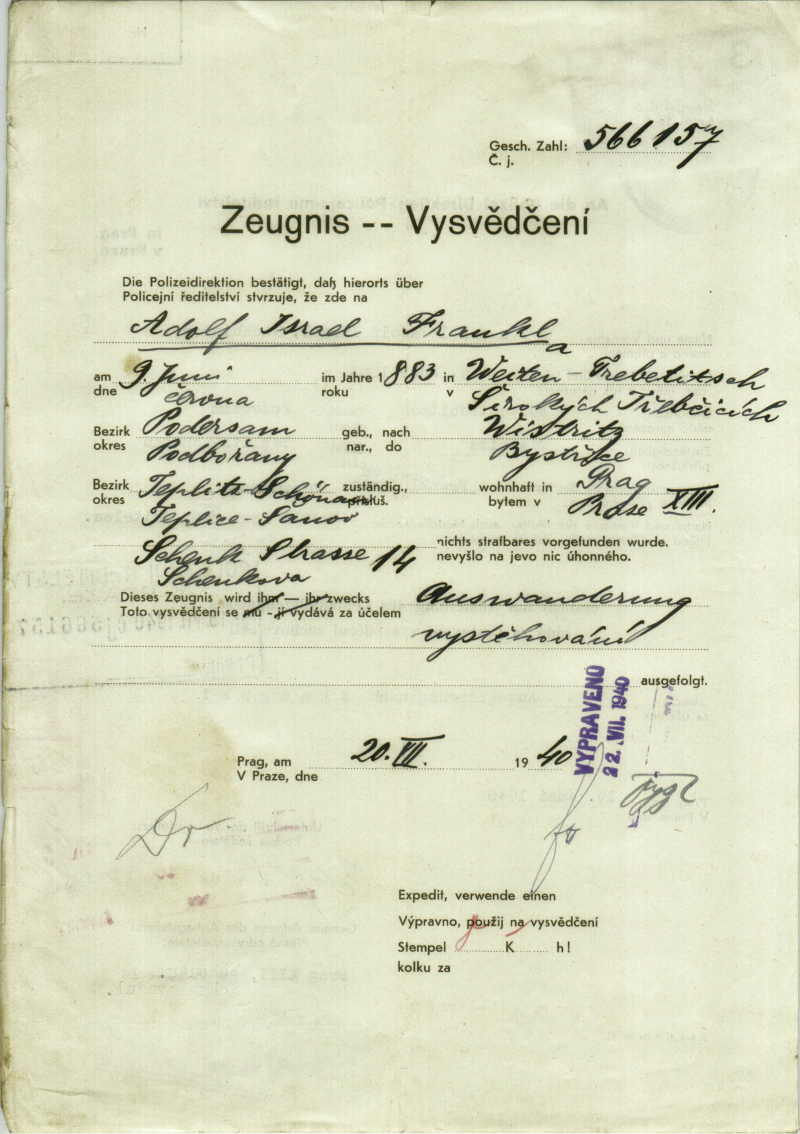 Gesch. Zahl: 566157
Č. j.
Zeugnis -- Vysvědčení
Die Polizeidirektion bestätigt, daß hierorts über
Policejní ředitelství stvrzuje, že zde na
Adolf Israel Frankl
a
am 9. Juni im Jahre 1883 in Weiten-Trebetitsch
dne června roku v Širokých Třebčicích
Bezirk Podersam geb., nach Wistritz
okres Podbořany nar., do Bystřice
Bezirk Teplitz-Schönau zuständig., wohnhaft in Prag
okres Teplice-Šanov přísluš. bytem v Praze XIII.
Schenk Strasse 14 nichts strafbares vorgefunden wurde.
Schenkova nevyšlo na jevo nic úhonného.
Dieses Zeugnis wird ihm — ihr zwecks Auswanderung
Toto vysvědčení se mu - jí vydává za účelem vystěhování
ausgefolgt.
VYPRAVENO
22. VII. 1940
Prag, am 20. VII. 1940
V Praze, dne
Dr
Expedit, verwende einen
Výpravno, použij na vysvědčení
Stempel K h!
kolku za